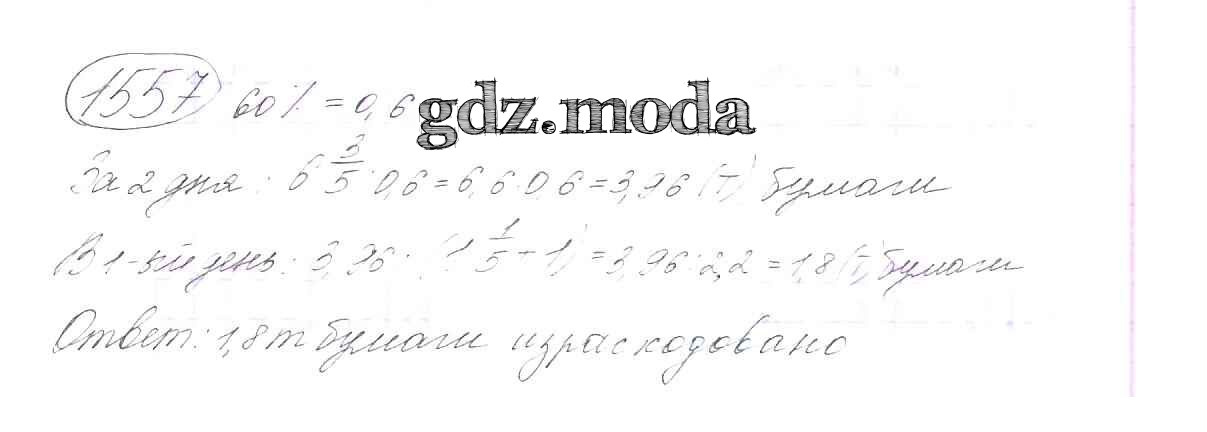 1557 60% = 0,6
gdz.moda
За 2 дня: 6 3/5 · 0,6 = 6,6 · 0,6 = 3,96 (т) бумаги
В 1-ый день: 3,96 : (1 1/5 + 1) = 3,96 : 2,2 = 1,8 (т) бумаги
Ответ: 1,8 т бумаги израсходовано